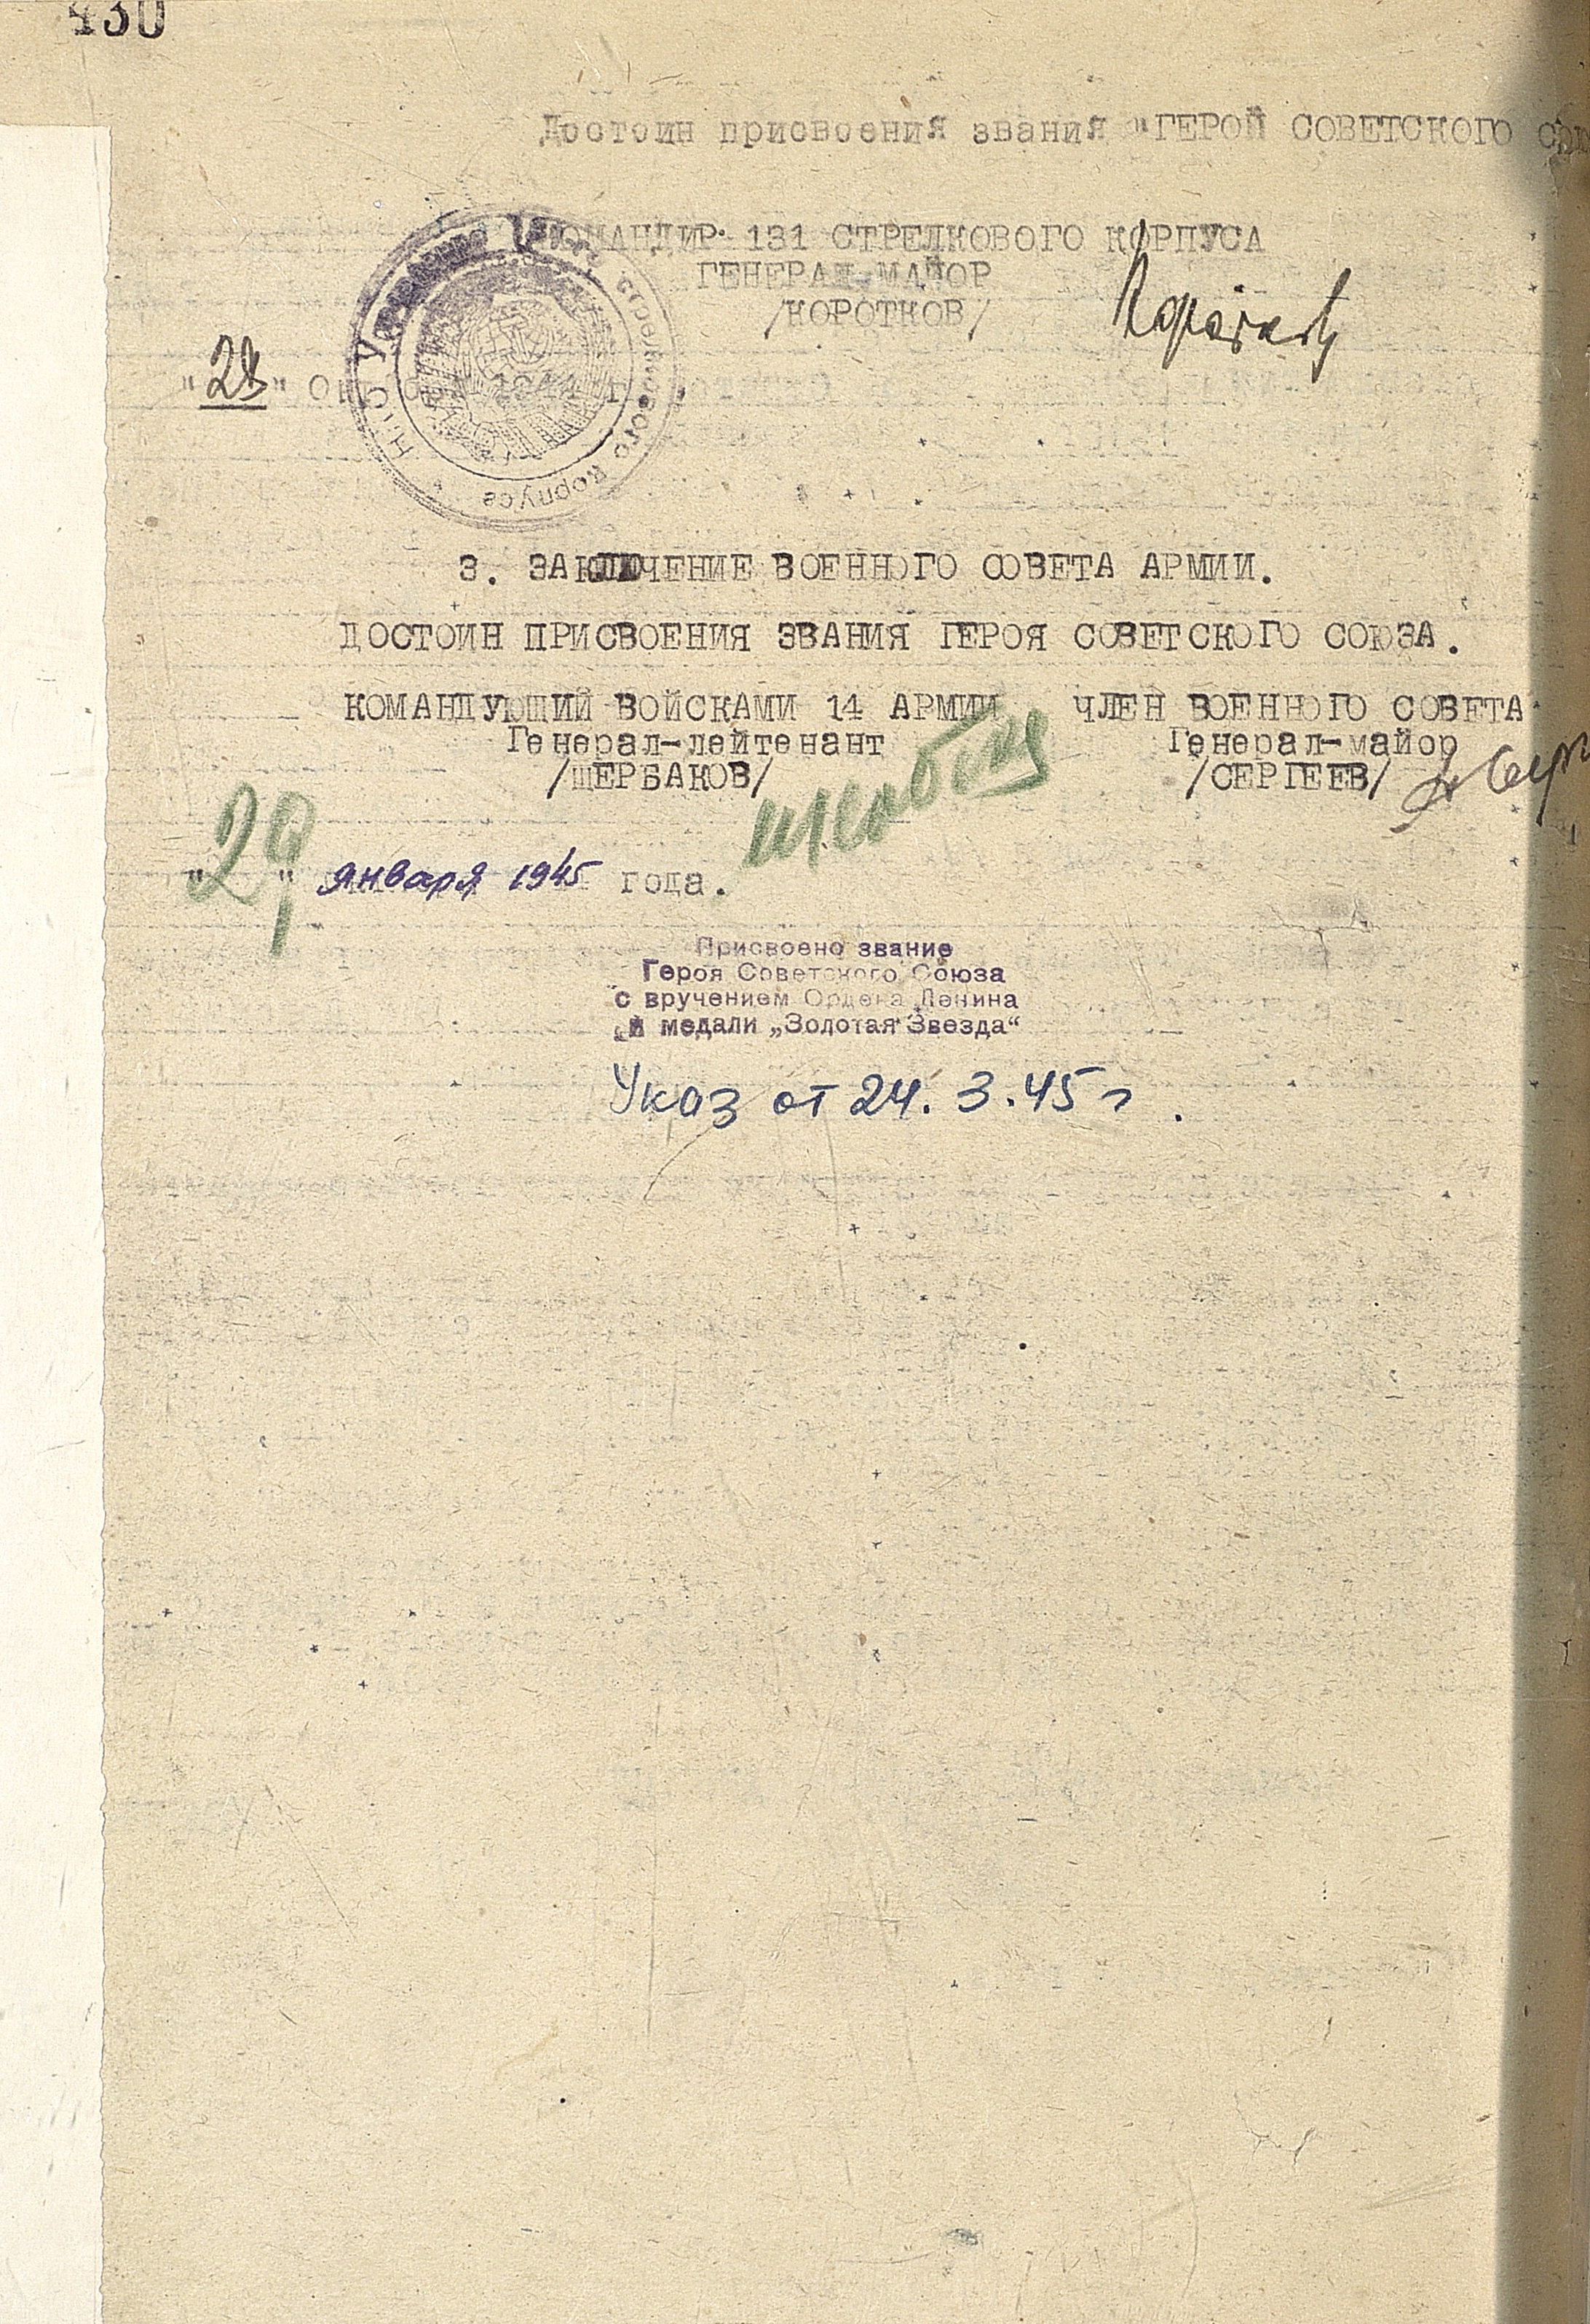 430
Достоин присвоения звания "ГЕРОЙ СОВЕТСКОГО
КОМАНДИР 131 СТРЕЛКОВОГО КОРПУСА
ГЕНЕРАЛ-МАЙОР
/КОРОТКОВ/
Коротков
"28" 1944 г.
стрелкового корпуса
3. ЗАКЛЮЧЕНИЕ ВОЕННОГО СОВЕТА АРМИИ.
ДОСТОИН ПРИСВОЕНИЯ ЗВАНИЯ ГЕРОЯ СОВЕТСКОГО СОЮЗА.
КОМАНДУЮЩИЙ ВОЙСКАМИ 14 АРМИИ ЧЛЕН ВОЕННОГО СОВЕТА
Генерал-лейтенант Генерал-майор
/ЩЕРБАКОВ/ /СЕРГЕЕВ/
"29" января 1945 года.
Присвоено звание
Героя Советского Союза
с вручением Ордена Ленина
и медали „Золотая Звезда“
Указ от 24.3.45 г.